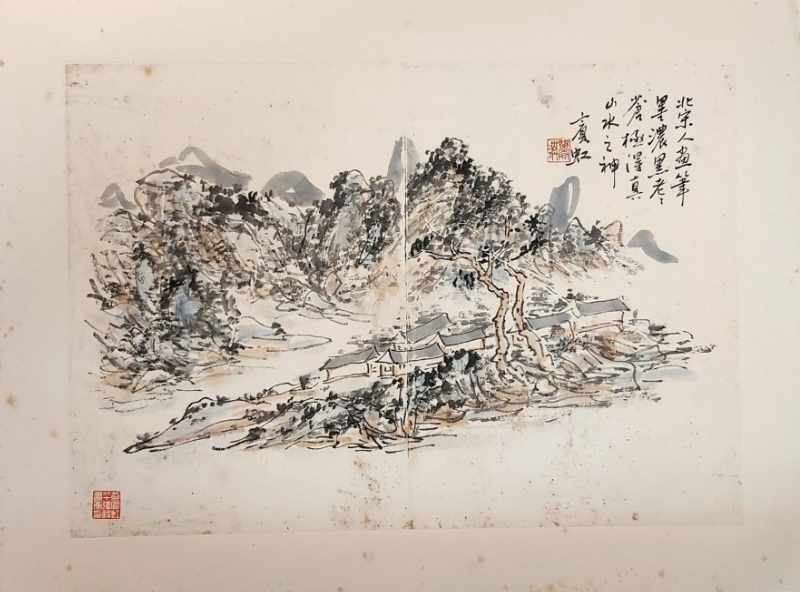 北宋人画筆
墨濃黑老々
蒼極得真
山水之神
賓虹